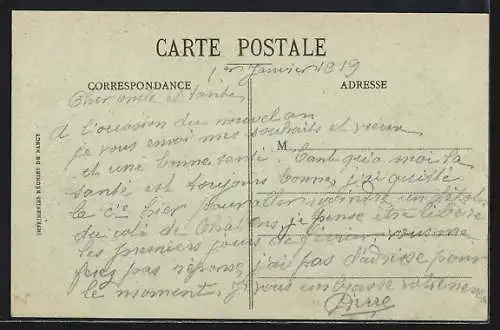 CARTE POSTALE
CORRESPONDANCE
ADRESSE
M
IMPRIMERIES RÉUNIES DE NANCY
1er Janvier 1919
Cher oncle et tante,
A l'occasion du nouvel an
je vous envoi mes souhaits et vœux
et une bonne santé. Tant qu'a moi la
santé est toujours bonne, j'ai quitté
la Cie hier pour aller rejoindre un
du coté de Chalons, je pense être libéré
les premiers jours de février, vous me
pas réponse, j'ai pas d'adresse pour
le moment. Je vous embrasse votre neveu
Pierre